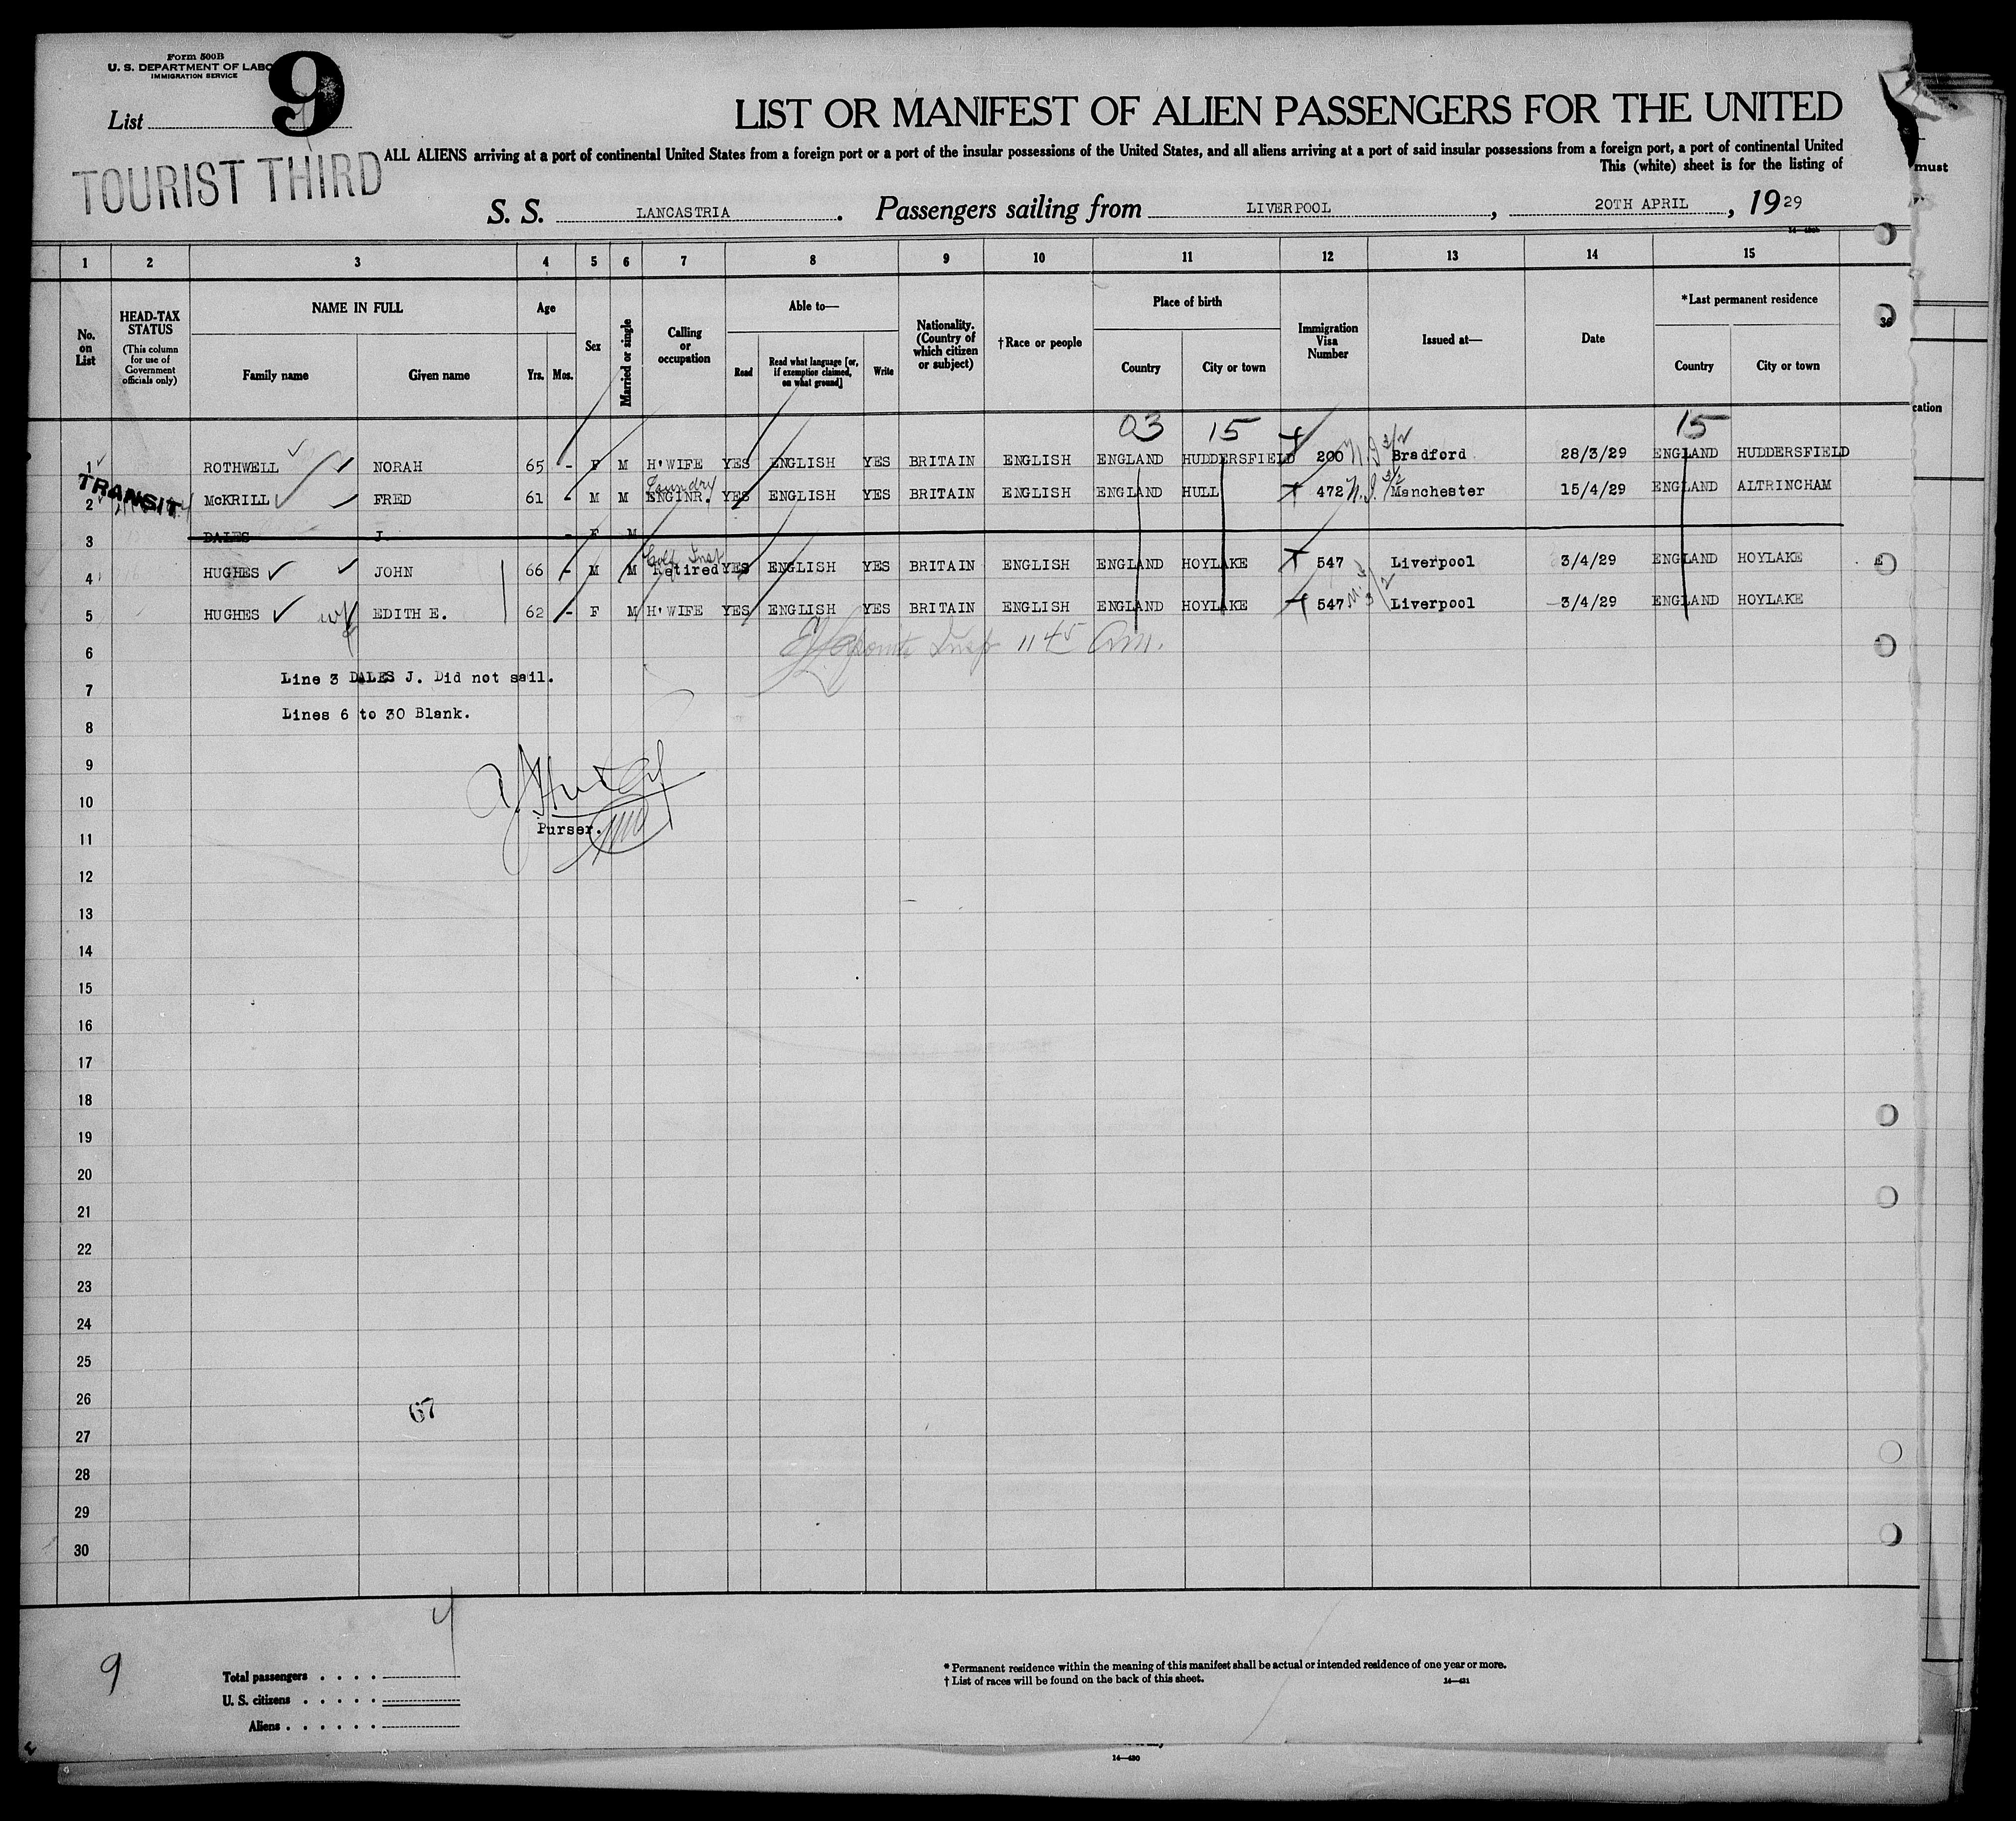 Form 500B
U. S. DEPARTMENT OF LABO
IMMIGRATION SERVICE
List 9
TOURIST THIRD
LIST OR MANIFEST OF ALIEN PASSENGERS FOR THE UNITED
ALL ALIENS arriving at a port of continental United States from a foreign port or a port of the insular possessions of the United States, and all aliens arriving at a port of said insular possessions from a foreign port, a port of continental United
This (white) sheet is for the listing of
must
S. S. LANCASTRIA. Passengers sailing from LIVERPOOL, 20TH APRIL, 1929
1 2 3 4 5 6 7 8 9 10 11 12 13 14 15
No. on List
HEAD-TAX STATUS
(This column for use of Government officials only)
NAME IN FULL
Family name Given name
Age
Yrs. Mos.
Sex
Married or single
Calling or occupation
Able to—
Read Read what language [or, if exemption claimed, on what ground] Write
Nationality. (Country of which citizen or subject)
†Race or people
Place of birth
Country City or town
Immigration Visa Number
Issued at—
Date
*Last permanent residence
Country City or town
cation
03 15 15
1 ROTHWELL NORAH 65 - F M H'WIFE YES ENGLISH YES BRITAIN ENGLISH ENGLAND HUDDERSFIELD 200 Bradford 28/3/29 ENGLAND HUDDERSFIELD
TRANSIT
Laundry
2 McKRILL FRED 61 - M M ENGINR. YES ENGLISH YES BRITAIN ENGLISH ENGLAND HULL 472 Manchester 15/4/29 ENGLAND ALTRINCHAM
3 DALES J. - F M
4 HUGHES JOHN 66 - M M Retired YES ENGLISH YES BRITAIN ENGLISH ENGLAND HOYLAKE 547 Liverpool 3/4/29 ENGLAND HOYLAKE
5 HUGHES wf EDITH E. 62 - F M H'WIFE YES ENGLISH YES BRITAIN ENGLISH ENGLAND HOYLAKE 547 Liverpool 3/4/29 ENGLAND HOYLAKE
6 Insp 11 45 am.
Line 3 DALES J. Did not sail.
7
Lines 6 to 30 Blank.
8
9
10
Purser.
11
12
13
14
15
16
17
18
19
20
21
22
23
24
25
26
67
27
28
29
30
4
9
Total passengers
U. S. citizens
Aliens
* Permanent residence within the meaning of this manifest shall be actual or intended residence of one year or more.
† List of races will be found on the back of this sheet.
14—421
14—420